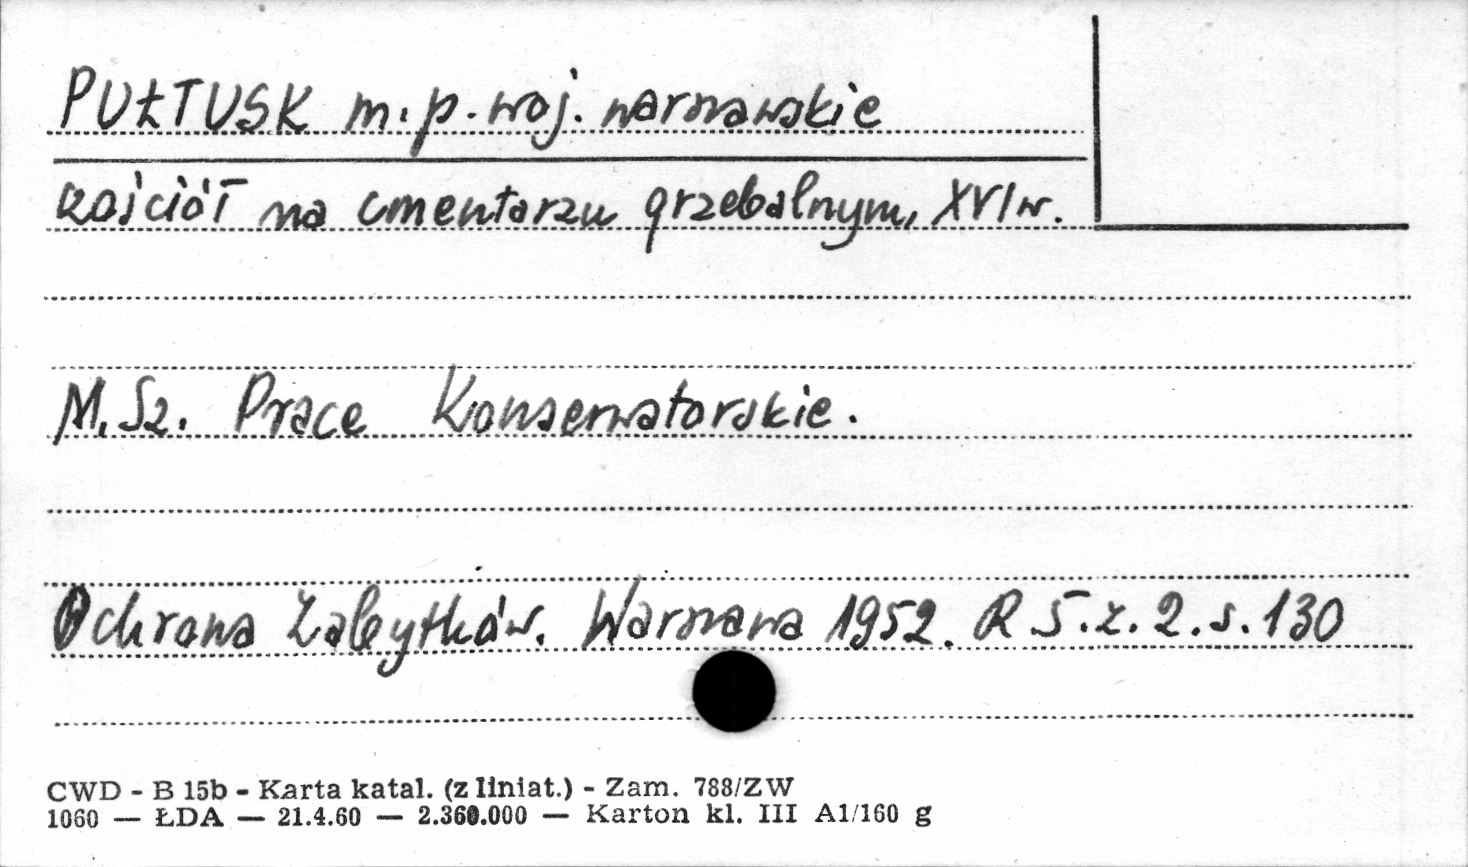 PUŁTUSK m.p. woj. warszawskie
kościół na cmentarzu grzebalnym, XVI w.
M. Sz. Prace Konserwatorskie.
Ochrona Zabytków. Warszawa 1952. R 5. z. 2. s. 130
CWD - B 15b - Karta katal. (z liniat.) - Zam. 788/ZW
1060 — ŁDA — 21.4.60 — 2.360.000 — Karton kl. III A1/160 g